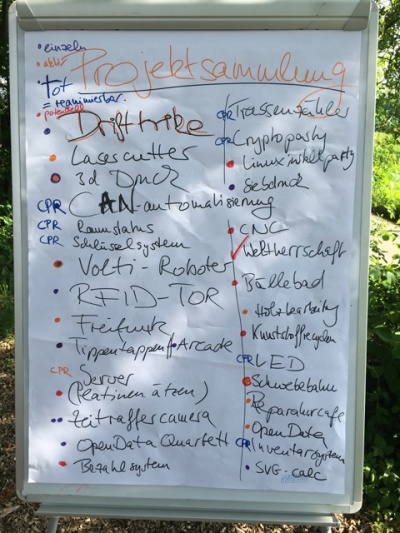 einzeln
aktiv
tot
= reanimierbar.
potentiell
Projektsammlung
Drifttrike
Lasercutter
3d Druck
CPR CAN-automatisierung
CPR Raumstatus
CPR Schlüsselsystem
Volti-Roboter
RFID-TOR
Freifunk
Tippentappen Arcade
CPR Server
(Platinen ätzen)
Zeitraffercamera
OpenData Quartett
Bezahlsystem
CPR Trassenzähler
CPR Cryptoparty
Linux installparty
Siebdruck
CNC
Weltherrschaft
Bällebad
Holzbearbeitung
Kunststoffrecyclen
CPR LED
Schwebebahn
Reparaturcafe
OpenData
CPR Inventarsystem
SVG-calc